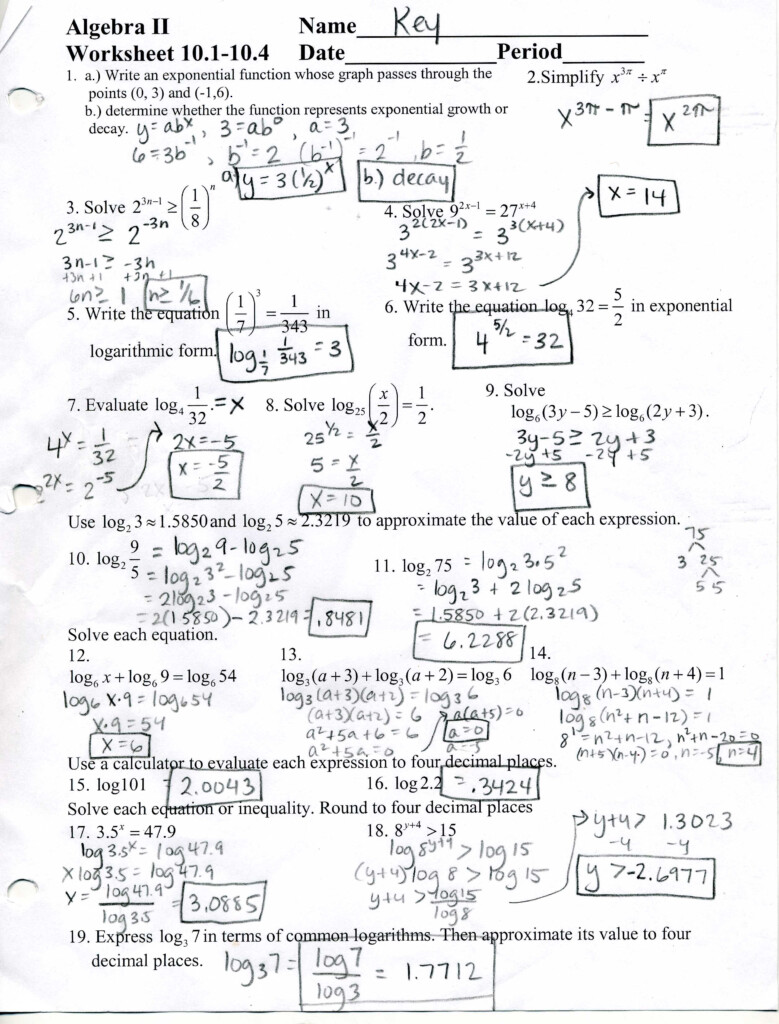 Algebra II Name Key
Worksheet 10.1-10.4 Date Period
1. a.) Write an exponential function whose graph passes through the
points (0, 3) and (-1,6).
b.) determine whether the function represents exponential growth or
decay. y=abˣ, 3=ab⁰, a=3
6=3b⁻¹, b⁻¹=2 (b⁻¹)⁻¹=2⁻¹, b=1/2
a) y=3(½)ˣ b.) decay
2.Simplify x^(3π) ÷ x^π
x^(3π-π) = x^(2π)
3. Solve 2^(3n-1) ≥ (1/8)^n
2^(3n-1) ≥ 2^(-3n)
3n-1 ≥ -3n
+3n +1 +3n +1
6n ≥ 1 n ≥ 1/6
4. Solve 9^(2x-1) = 27^(x+4)
3^(2(2x-1)) = 3^(3(x+4))
3^(4x-2) = 3^(3x+12)
4x-2 = 3x+12
x=14
5. Write the equation (1/7)³ = 1/343 in
logarithmic form. log_(1/7) 1/343 = 3
6. Write the equation log₄ 32 = 5/2 in exponential
form. 4^(5/2) = 32
7. Evaluate log₄ 1/32. = x
4ˣ = 1/32
2^(2x) = 2⁻⁵
2x=-5
x = -5/2
8. Solve log₂₅ (x/2) = 1/2.
25^(1/2) = x/2
5 = x/2
x=10
9. Solve
log₆(3y−5) ≥ log₆(2y+3).
3y-5 ≥ 2y+3
-2y+5 -2y +5
y ≥ 8
Use log₂ 3 ≈ 1.5850 and log₂ 5 ≈ 2.3219 to approximate the value of each expression.
10. log₂ 9/5 = log₂9-log₂5
= log₂3²-log₂5
= 2log₂3 -log₂5
= 2(1.5850)- 2.3219= .8481
11. log₂ 75 = log₂ 3·5²
= log₂3 + 2log₂5
= 1.5850 + 2(2.3219)
= 6.2288
75
3 25
5 5
Solve each equation.
12.
log₆ x + log₆ 9 = log₆ 54
log₆ x·9 = log₆54
x·9=54
x=6
13.
log₃(a+3) + log₃(a+2) = log₃ 6
log₃(a+3)(a+2) = log₃6
(a+3)(a+2) = 6
a²+5a+6=6
a²+5a=0
a(a+5)=0
a=0
a=-5
14.
log₈(n−3) + log₈(n+4) = 1
log₈(n-3)(n+4) = 1
log₈(n²+n-12)=1
8¹=n²+n-12, n²+n-20=0
(n+5)(n-4)=0, n=-5, n=4
Use a calculator to evaluate each expression to four decimal places.
15. log101 = 2.0043
16. log2.2 = .3424
Solve each equation or inequality. Round to four decimal places
17. 3.5ˣ = 47.9
log3.5ˣ = log47.9
x log3.5 = log47.9
x = log47.9/log3.5 = 3.0885
18. 8^(y+4) > 15
log8^(y+4) > log15
(y+4)log8 > log15
y+4 > log15/log8
y+4 > 1.3023
-4 -4
y >-2.6977
19. Express log₃ 7 in terms of common logarithms. Then approximate its value to four
decimal places. log₃7 = log7/log3 = 1.7712